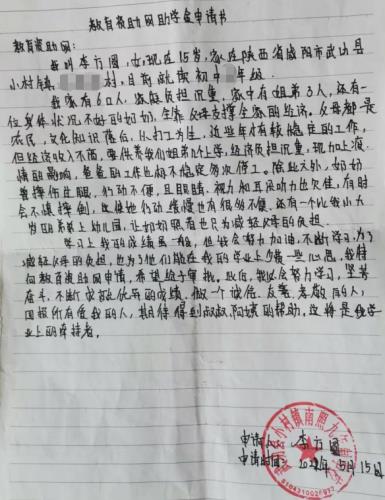 教育资助网助学金申请书
教育资助网:
我叫李方圆,女,现在15岁,家在陕西省咸阳市武功县
小村镇 村,目前就读初中 年级。
我家有6口人,家庭负担沉重,家中有姐弟3人,还有一
位身体状况不好的奶奶,全靠父母支撑全家的经济,父母都是
农民,文化知识落后,从打工为生,这些年才有较稳定的工作,
但经济收入不高,要供养我们姐弟几个上学,经济负担沉重,现加上疫
情的影响,爸爸的工作也极不稳定多次停工。除此之外,奶奶
曾摔伤过腿,行动不便,且眼睛,视力和耳朵听力也欠佳,有时
会不慎摔倒,这使她行动缓慢也有很多不便,还有一个比我小九
岁的弟弟上幼儿园,让奶奶照看也只为减轻父母的负担。
学习上我的成绩虽一般,但我会努力加油,不断学习,为了
减轻父母的负担,也为了他们能在我的学业上少费一些心思,我特
向教育资助网申请,希望给予审批。此后,我必会努力学习,坚苦
奋斗,不断求取优异的成绩,做一个诚信、友善、孝敬 的人,
回报所有爱我的人,期待得到叔叔、阿姨的帮助,这将是我学
业上的牵持者。
申请人:李方圆
申请时间:2022年5月15日
小村镇南照九